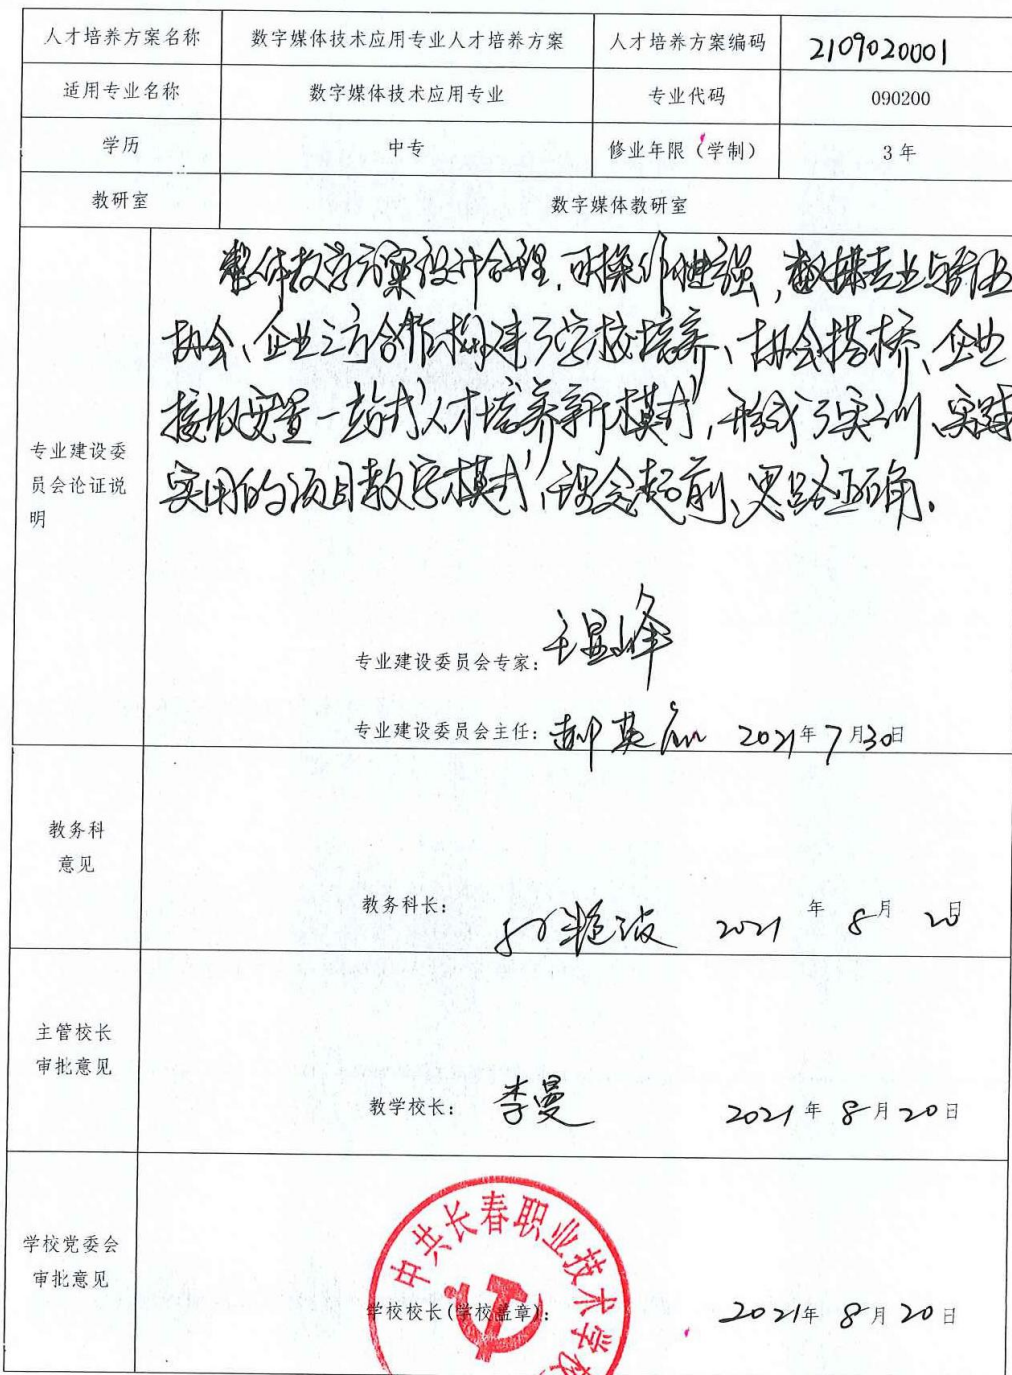 人才培养方案名称 数字媒体技术应用专业人才培养方案 人才培养方案编码 2109020001
适用专业名称 数字媒体技术应用专业 专业代码 090200
学历 中专 修业年限（学制） 3年
教研室 数字媒体教研室
专业建设委员会论证说明
整体教学方案设计合理,可操作性强,数媒专业与行业
协会、企业三方合作构建了学校培养、协会搭桥、企业
接收安置一站式人才培养新模式,形成了实训、实践
实用的项目教学模式,理念超前、思路正确.
专业建设委员会专家: 王显峰
专业建设委员会主任: 郝英 2021年7月30日
教务科
意见
教务科长: 艳波 2021年8月20日
主管校长
审批意见
教学校长: 李曼 2021年8月20日
学校党委会
审批意见
中共长春职业技术学校
学校校长(学校盖章): 2021年8月20日